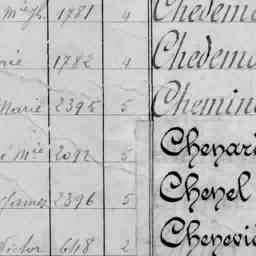 Mgh. 1781 4 Chedem
rie 1782 4 Chedem
Marie 2395 5 Chemin
é Mie 2092 5 Chenar
James 2396 5 Chenel
Victor 648 2 Chenevi